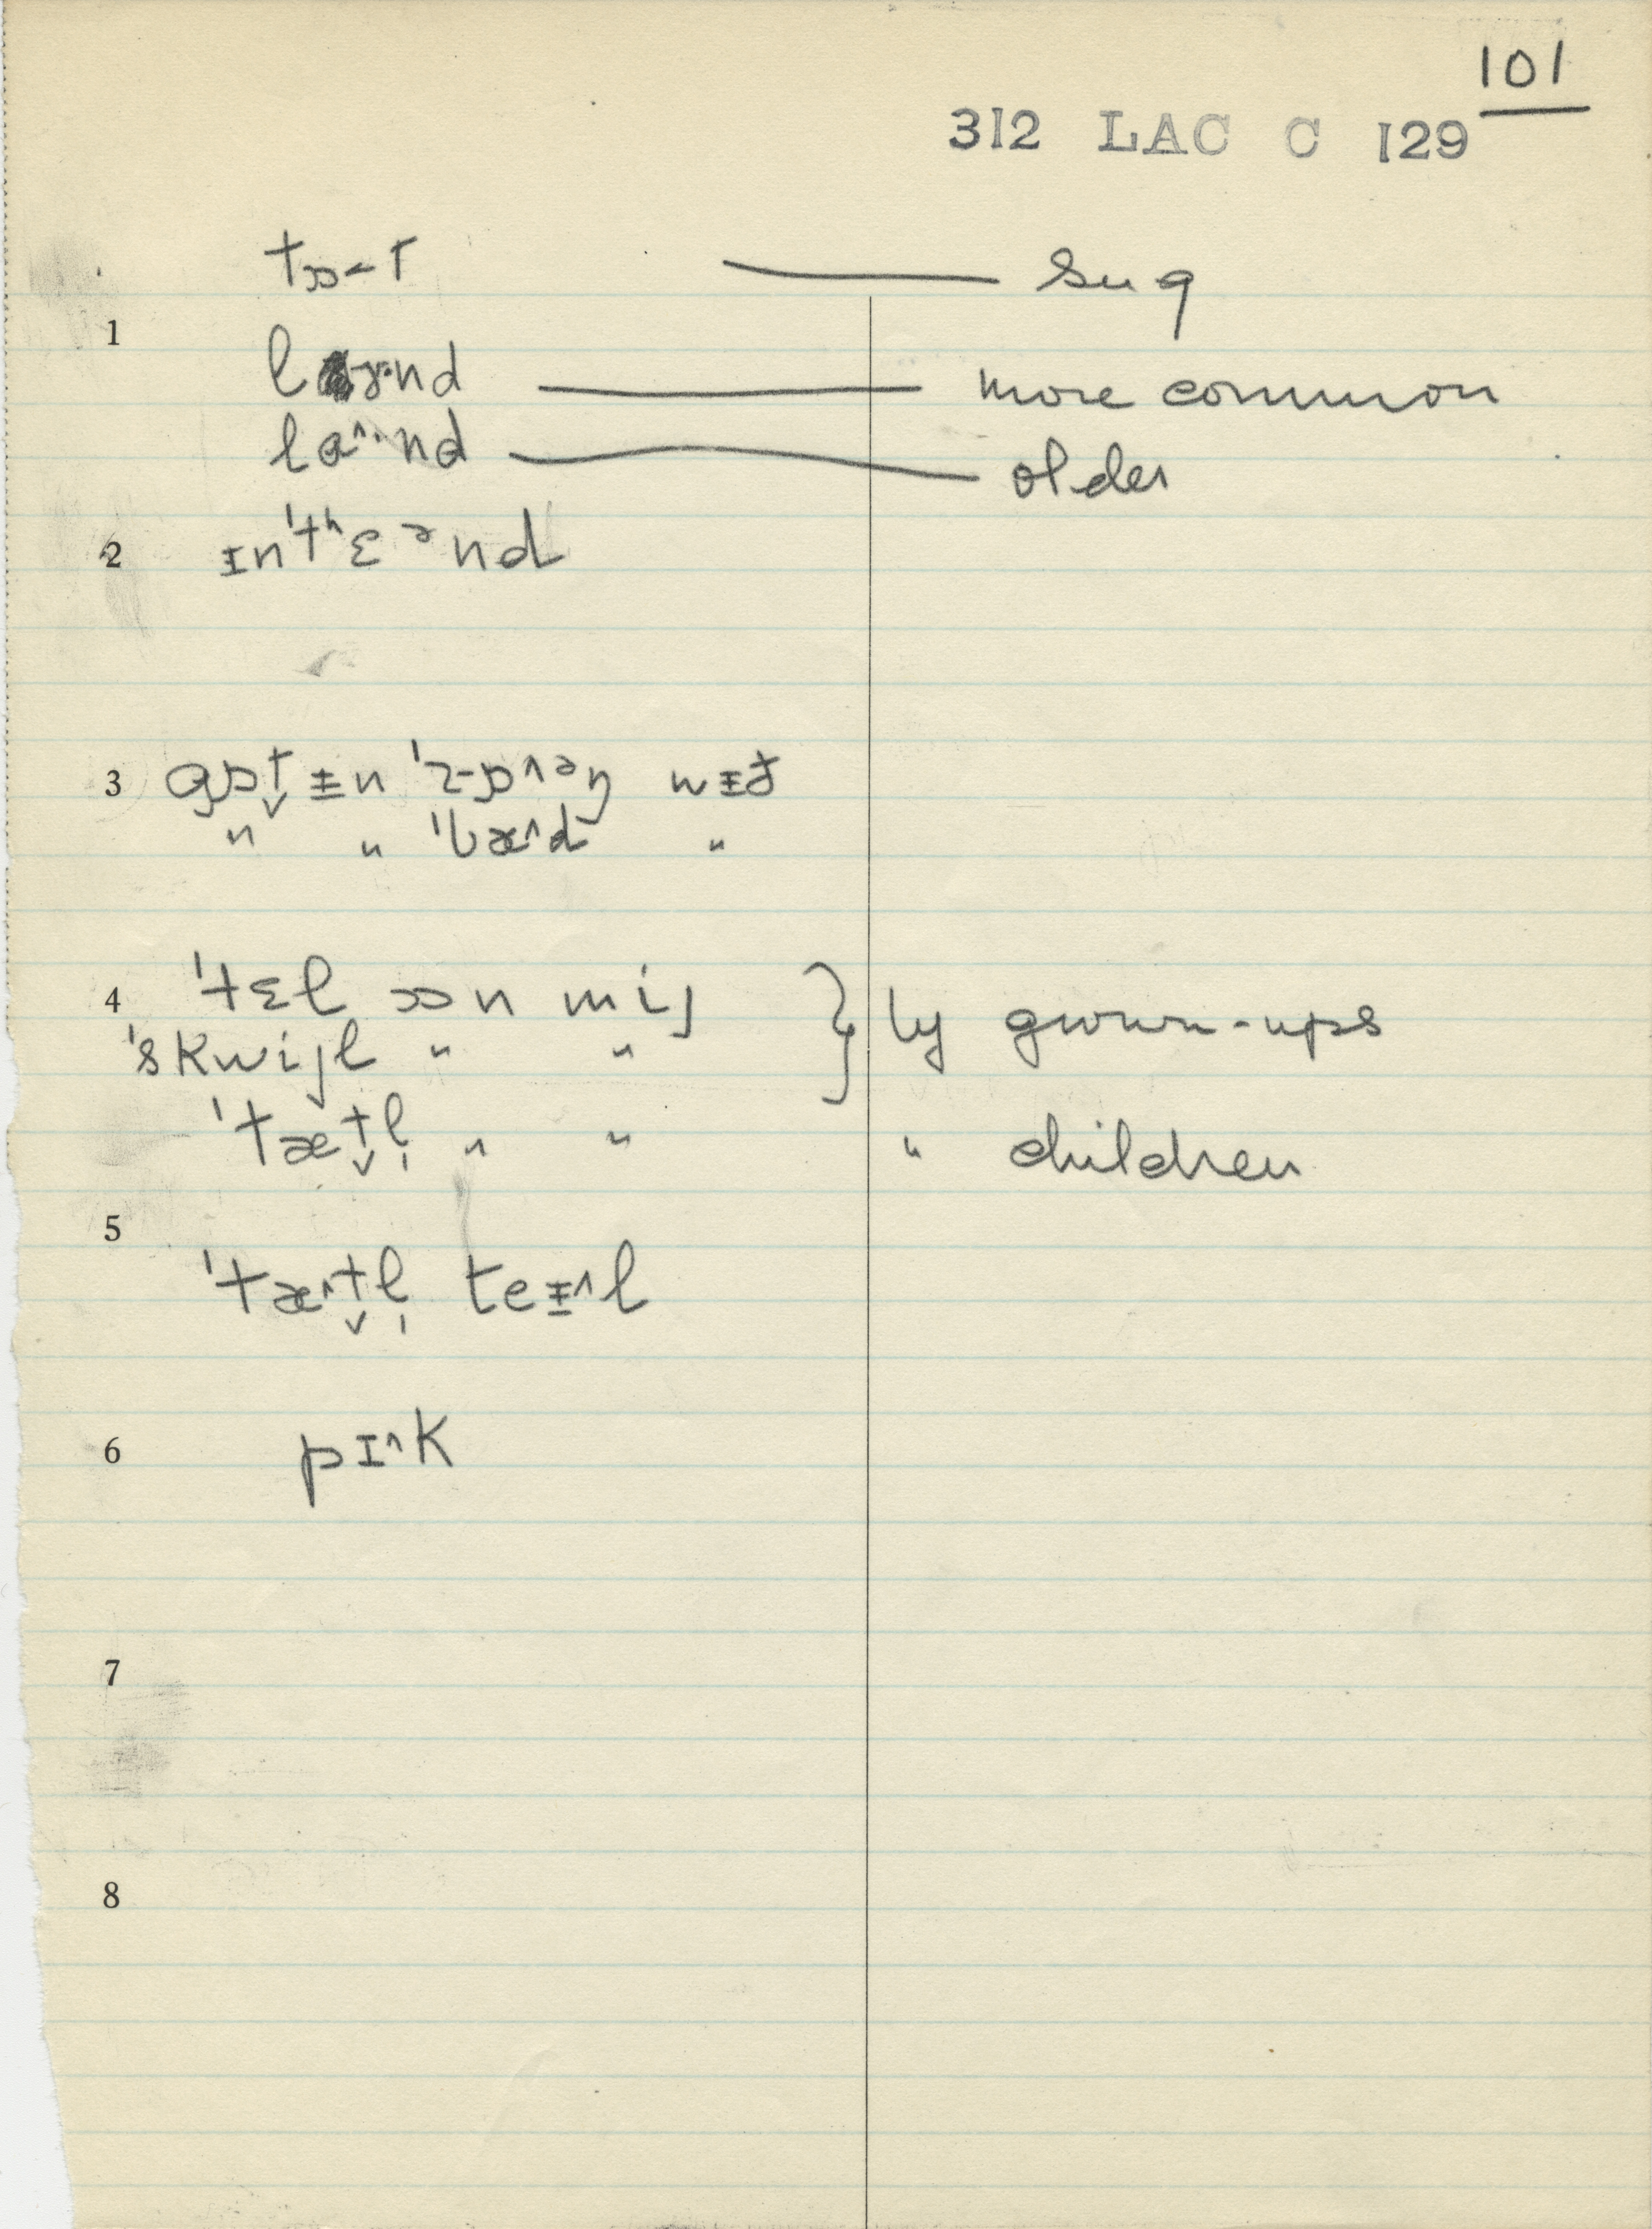 101
312 LAC C 129
tɒ-t — sug
1
lɤ·nd — more common
lɑ^·nd — older
2 ɪn'tʰɛᵊnd
3 gɒt̬ ɪn 'rɒ^əŋ wɪð
" " 'bæ^d "
4 'tɛl ɒn mij } by grown-ups
'skwijl " "
'tæt̬l̩ " " " children
5
'tæ^t̬l̩ teɪ^l
6 pɪ^k
7
8